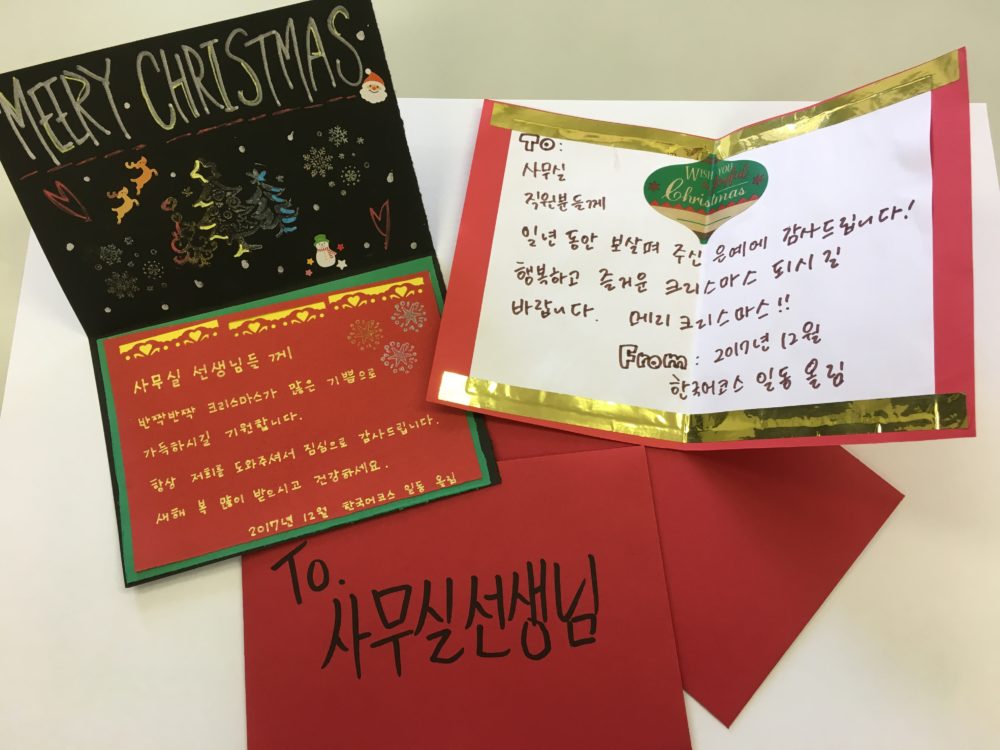 MEERY CHRISTMAS
사무실 선생님들 께
반짝반짝 크리스마스가 많은 기쁨으로
가득하시길 기원합니다.
항상 저희를 도와주셔서 짐심으로 감사드립니다.
새해 복 많이 받으시고 건강하세요.
2017년 12월 한국어코스 일동 올림
To:
사무실
직원분들께
WISH YOU
Christmas
일년 동안 보살펴 주신 은예에 감사드립니다!
행복하고 즐거운 크리스마스 되시길
바랍니다. 메리크리스마스!!
From: 2017년 12월
한국어코스 일동 올림
To.
사무실선생님